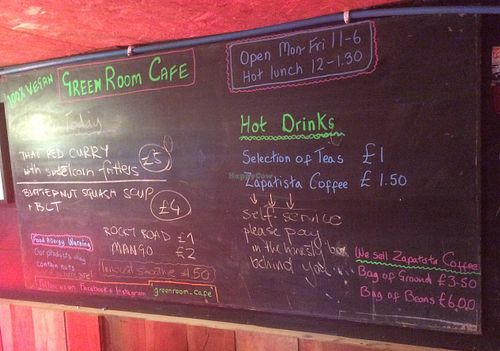 100% VEGAN
GREEN ROOM CAFE
Open Mon-Fri 11-6
Hot lunch 12-1.30
Today
THAI RED CURRY
with sweetcorn fritters
£5
BUTTERNUT SQUASH SOUP
+ BLT
£4
ROCKY ROAD £1
MANGO £2
smoothie £1.50
Food Allergy Warning
Our products may
contain nuts
Follow us on Facebook & Instagram
greenroom_cafe
Hot Drinks
Selection of Teas £1
Zapatista Coffee £1.50
self-service
please pay
in the honesty box
behind you
We sell Zapatista Coffee
Bag of Ground £3.50
Bag of Beans £6.00
HappyCow